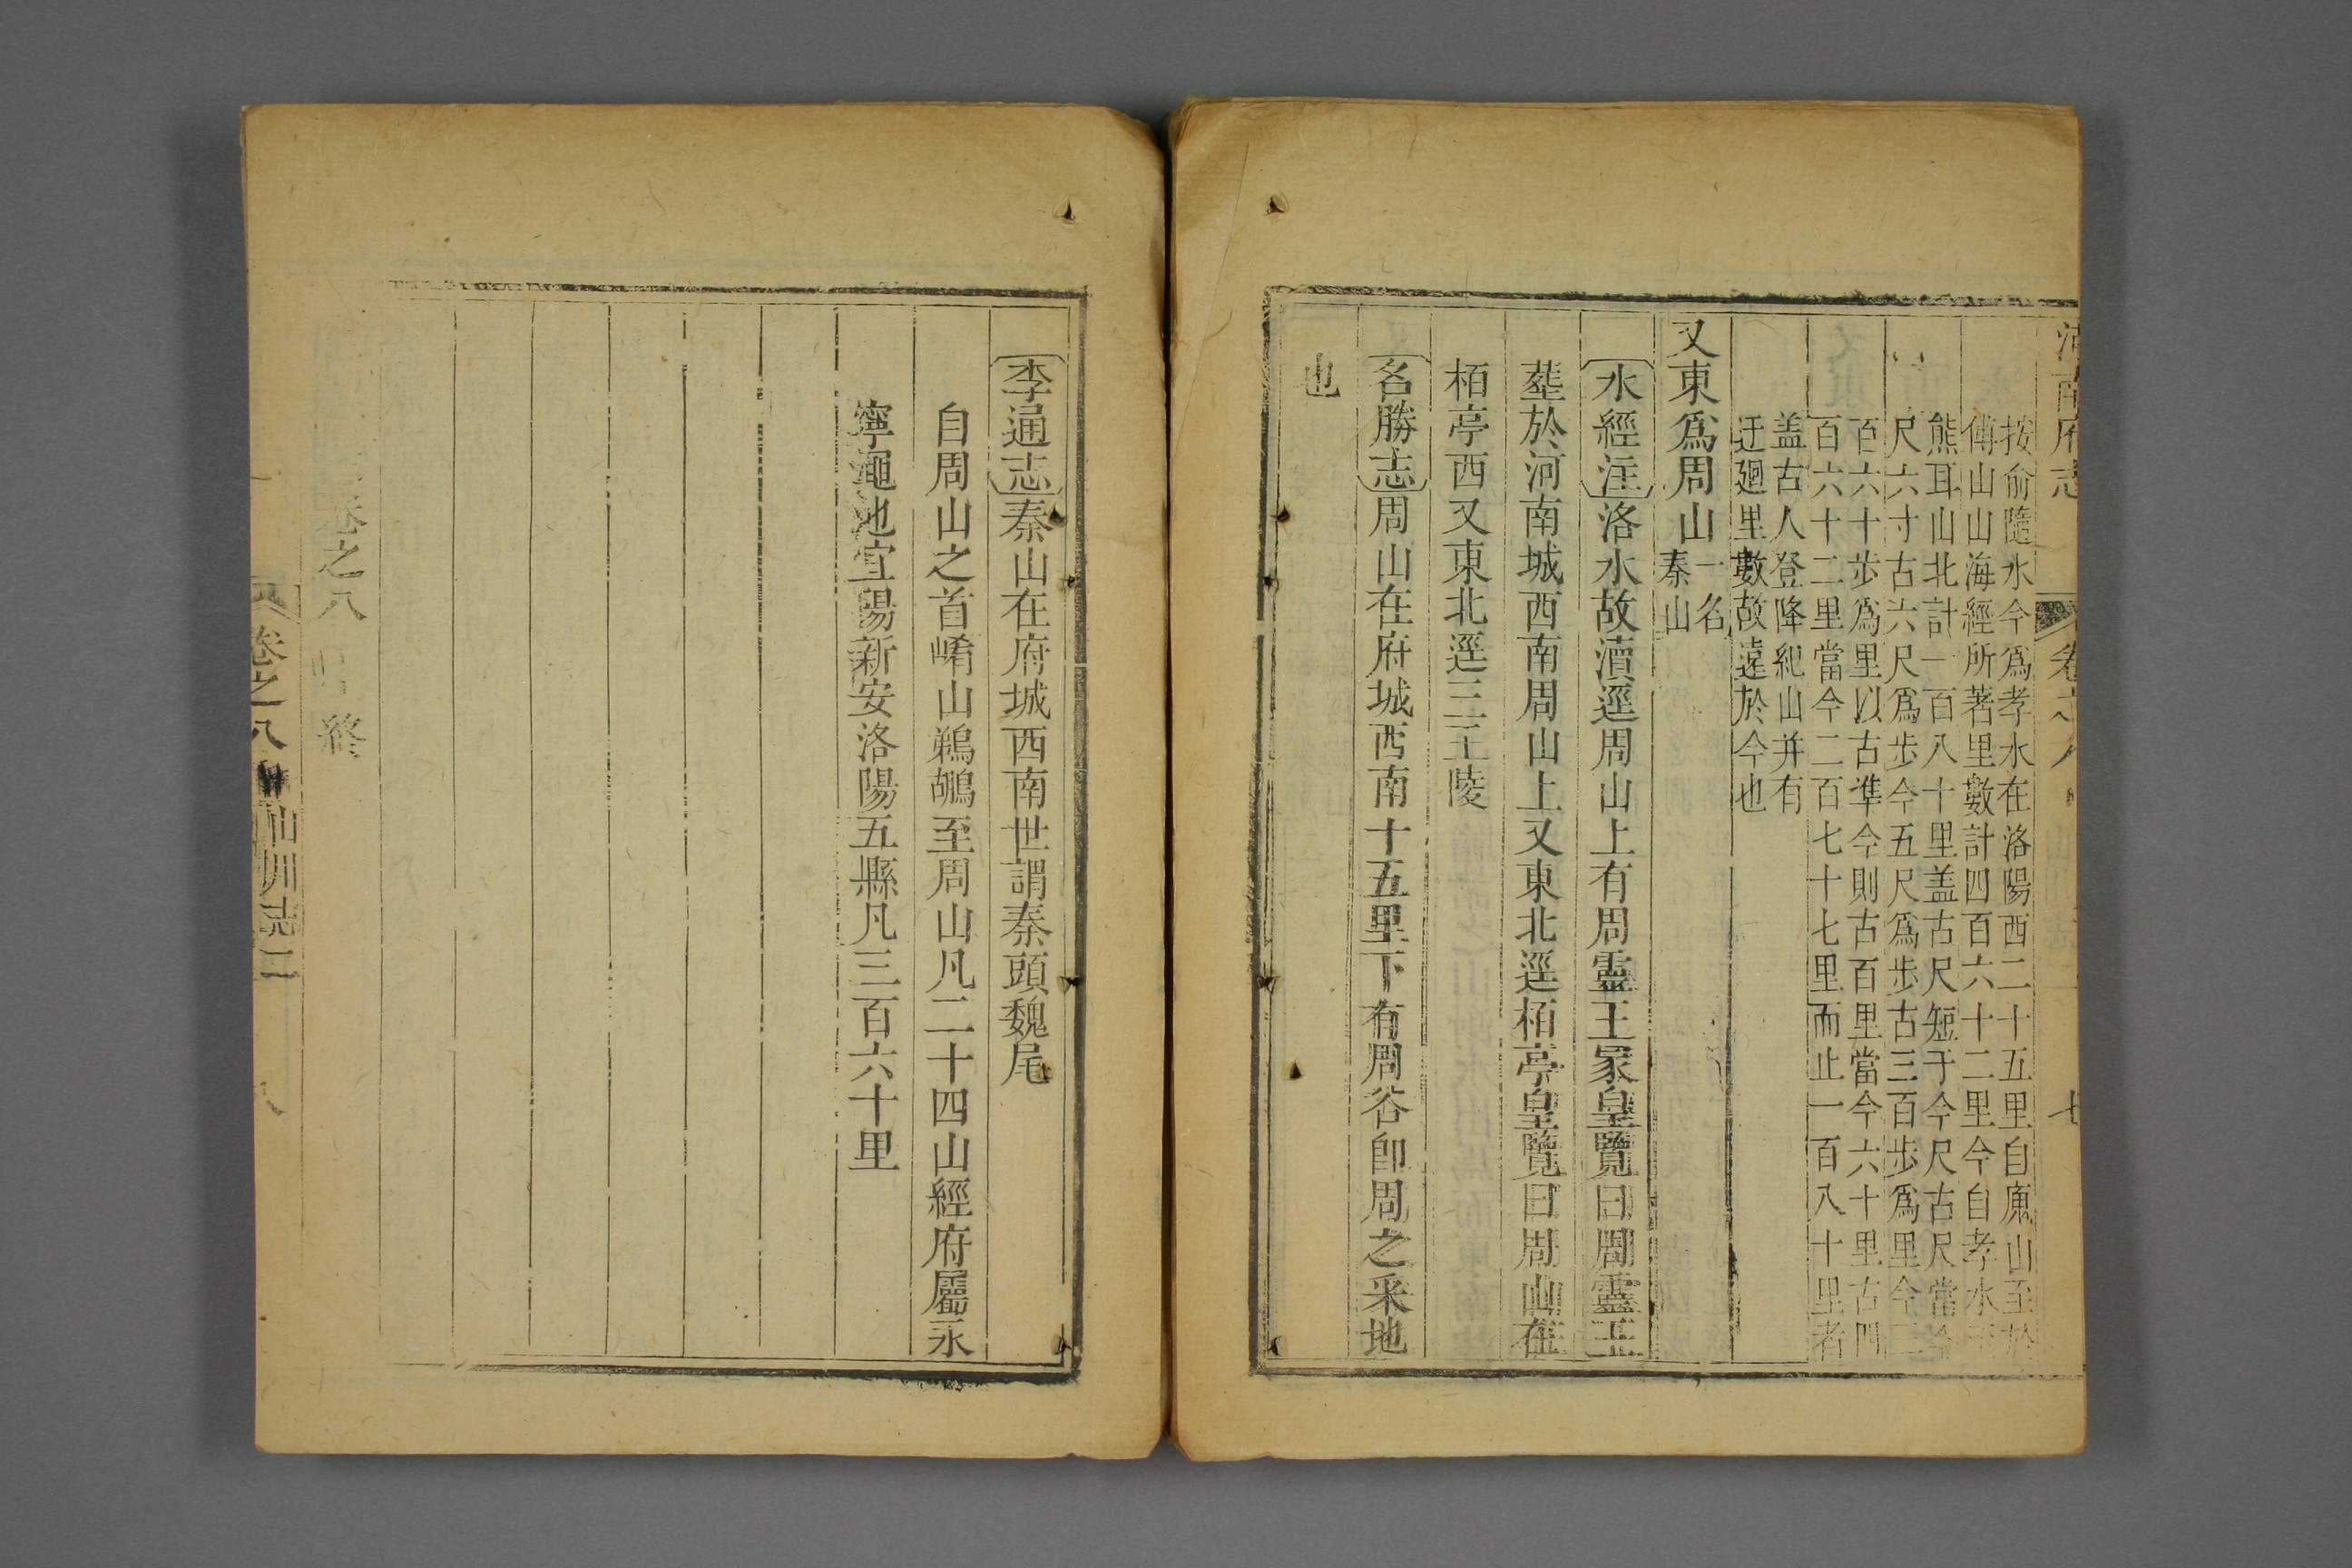 河南府志 卷之八 七
按俞隨水今爲孝水在洛陽西二十五里自廆山至於
傅山山海經所著里數計四百六十二里今自孝水
熊耳山北計一百八十里盖古尺短于今尺古尺當今
尺六寸古六尺爲步今五尺爲步古三百步爲里今三
百六十步爲里以古準今則古百里當今六十里古四
百六十二里當今二百七十七里而止一百八十里者
盖古人登降紀山并有
迂廻里數故遠於今也
又東爲周山一名秦山
水經注洛水故瀆逕周山上有周靈王冢皇覽曰周靈王
塟於河南城西南周山上又東北逕栢亭皇覽曰周山在
栢亭西又東北逕三王陵
名勝志周山在府城西南十五里下有周谷卽周之采地
也
李通志秦山在府城西南世謂秦頭魏尾
自周山之首崤山鵜鶘至周山凡二十四山經府屬永
寧澠池宜陽新安洛陽五縣凡三百六十里
卷之八 終
卷之八 山川志二 八